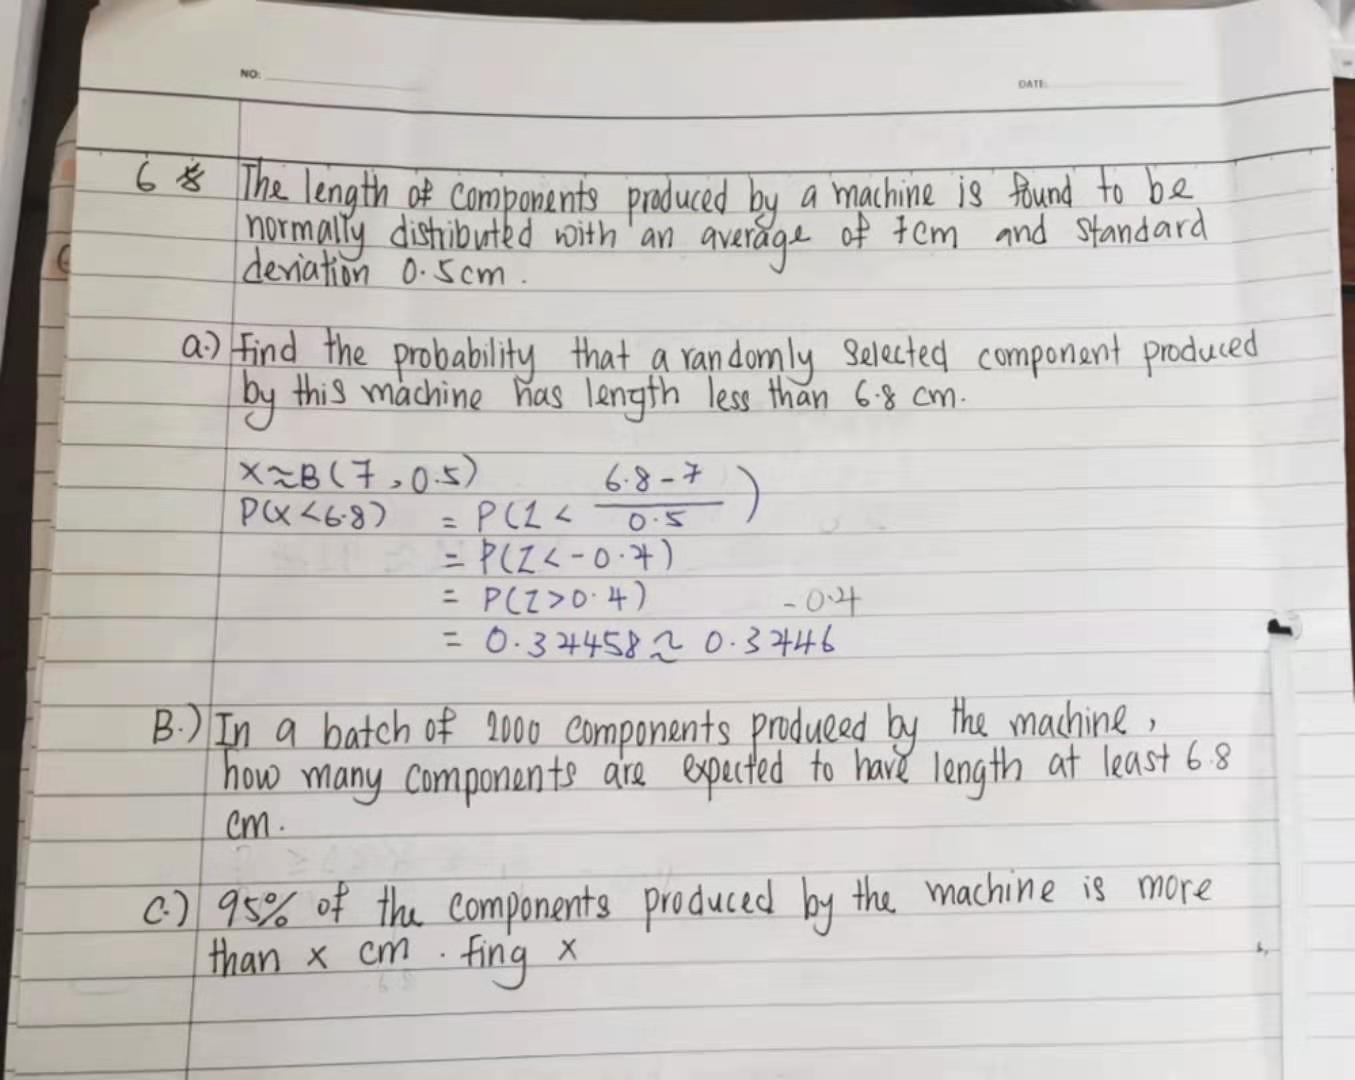 NO:
DATE:
6 The length of components produced by a machine is found to be
normally distributed with an average of 7cm and standard
deviation 0.5cm.
a.) find the probability that a randomly selected component produced
by this machine has length less than 6.8 cm.
X≈B(7,0.5)
P(X<6.8) = P(Z < (6.8-7)/0.5)
= P(Z<-0.4)
= P(Z>0.4) -0.4
= 0.34458 ≈ 0.3446
B.) In a batch of 2000 components produced by the machine,
how many components are expected to have length at least 6.8
cm.
C.) 95% of the components produced by the machine is more
than x cm. fing x